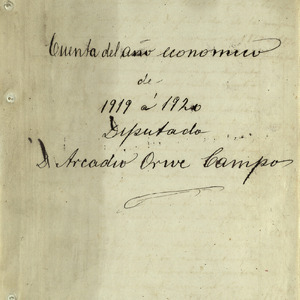 Cuenta del año economico
de
1919 á 1920
Diputado
D. Arcadio Orive Campo